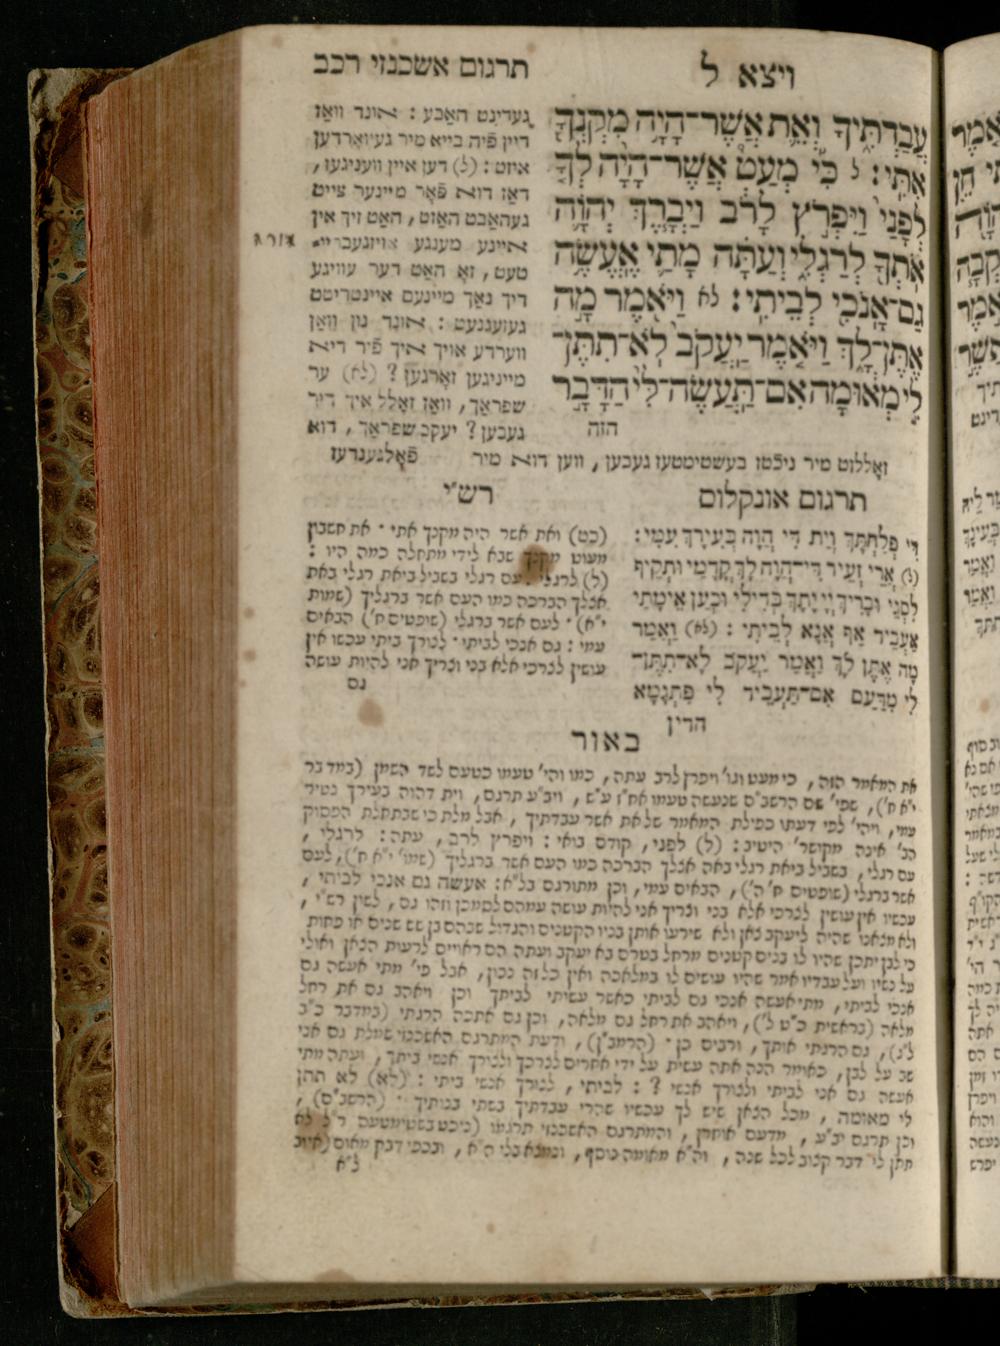 ויצא ל
תרגום אשכנזי רכב
עֲבַדְתִּיךָ וְאֵת אֲשֶׁר־הָיָה מִקְנְךָ
אִתִּי: ל כִּי מְעַט אֲשֶׁר־הָיָה לְךָ
לְפָנַי וַיִּפְרֹץ לָרֹב וַיְבָרֶךְ יְהֹוָה
אֹתְךָ לְרַגְלִי וְעַתָּה מָתַי אֶעֱשֶׂה
גַם־אָנֹכִי לְבֵיתִי: לא וַיֹּאמֶר מָה
אֶתֶּן־לָךְ וַיֹּאמֶר יַעֲקֹב לֹא־תִתֶּן־
לִי מְאוּמָה אִם־תַּעֲשֶׂה־לִּי הַדָּבָר
הזה
געדינט האבע: אונד וואז
דיין פֿיה בייא מיר געווארדען
איזט: (ל) דען איין וועניגעז,
דאז דוא פֿאר מיינער צייט
געהאבט האזט, האט זיך אין
איינע מענגע אויזגעבריי־
טעט, זא האט דער עוויגע
דיך נאך מיינעם איינטריטט
געזעגנעט: אונד נון וואן
ווערדע אויך איך פֿיר דיא
מייניגען זארגען? (לא) ער
שפראך, וואז זאלל איך דיר
געבען? יעקב שפראך, דוא
זאללזט מיר ניכֿטז בעשטימטעז געבען, ווען דוא מיר
פֿאלגענדעז
תרגום אונקלוס
דִּי פְלַחְתָּךְ וְיָת דִּי הֲוָה בְּעִירָךְ עִמִּי:
(ל) אֲרֵי זְעֵיר דִּי־הֲוָה לָךְ קֳדָמַי וּתְקֵיף
לִסְגֵּי וּבָרִיךְ יְיָ יָתָךְ בְּדִילִי וּכְעַן אֵימָתַי
אֶעְבֵּיד אַף אֲנָא לְבֵיתִי: (לא) וַאֲמַר
מָה אֶתֵּן לָךְ וַאֲמַר יַעֲקֹב לָא־תִתֶּן־
לִי מִדָּעַם אִם־תַּעְבֵּיד לִי פִּתְגָמָא
הדין
רש״י
(כט) ואת אשר היה מקנך אתי · את חשבון
מעוט מקנך שבא לידי מתחלה כמה היו:
(ל) לרגלי · עם רגלי בשביל ביאת רגלי באת
אצלך הברכה כמו העם אשר ברגליך (שמות
י״א) · לעם אשר ברגלי (שופטים ח׳) הבאים
עמי: גם אנכי לביתי · לצורך ביתי עכשו אין
עושין לצרכי אלא בני וצריך אני להיות עושה
גם
באור
את המאמר הזה, כי מעט וגו׳ ויפרץ לרב עתה, כמו והי׳ טעמו כטעם לשד השמן (במדבר
י״א ח׳), שפי׳ שם הרשב״ם שנעשה טעמו אח״ז ע״ש, ויב״ע תרגם, וית דהוה בעירך נטיר
עמי, ויהי׳ לפי דעתו כפילת המאמר של את אשר עבדתיך, אבל מלת כי שבתחלת הפסוק
הב׳ אינה מקושר׳ היטיב: (ל) לפני, קודם בואי: ויפרץ לרב, עתה: לרגלי,
עם רגלי, בשביל ביאת רגלי באה אצלך הברכה כמו העם אשר ברגליך (שמו׳ י״א ח׳), לעם
אשר ברגלי (שופטים ח׳ ה׳), הבאים עמי, וכן מתורגם בל״א: אעשה גם אנכי לביתי,
עכשיו אין עושין לצרכי אלא בני וצריך אני להיות עושה עמהם לסמכן וזהו גם, לשון רש״י,
ולא מצאנו שהיה ליעקב צאן ולא שירעו אותן בניו הקטנים והגדול שבהם בן שש שנים או פחות
כי לבן יתכן שהיו לו בנים קטנים מרחל בטרם בא יעקב ועתה הם ראויים לרעות הצאן ואולי
על נשיו ועל עבדיו אמר שהיו עושים לו במלאכה ואין כל זה נכון, אבל פי׳ מתי אעשה גם
אנכי לביתי, מתי אעשה אנכי גם לביתי כאשר עשיתי לביתך וכן ויאהב גם את רחל
מלאה (בראשית כ״ט ל׳), ויאהב את רחל גם מלאה, וכן גם אתכה הרגתי (במדבר כ״ב
ל״ג), גם הרגתי אותך, ורבים כן · (הרמב״ן), ודעת המתרגם האשכנזי שמלת גם אנכי
שב על לבן, כאומר הנה אתה עשית על ידי אחרים לצרכך ולצורך אנשי ביתך, ועתה מתי
אעשה גם אני לביתי ולצורך אנשי?: לביתי, לצורך אנשי ביתי: (לא) לא תתן
לי מאומה, מכל הצאן שיש לך עכשיו שהרי עבדתיך בשתי בנותיך · (הרשב״ם),
וכן תרגם יב״ע, מדעם אוחרן, והמתרגם האשכנזי תרגמו (ניכט בשטימטעס ר״ל לא
תתן לי דבר קצוב לכל שנה, וה״א מאומה נוסף, ונמצא בלי ה״א, ובכפי דבק מאום (איוב
ל״א